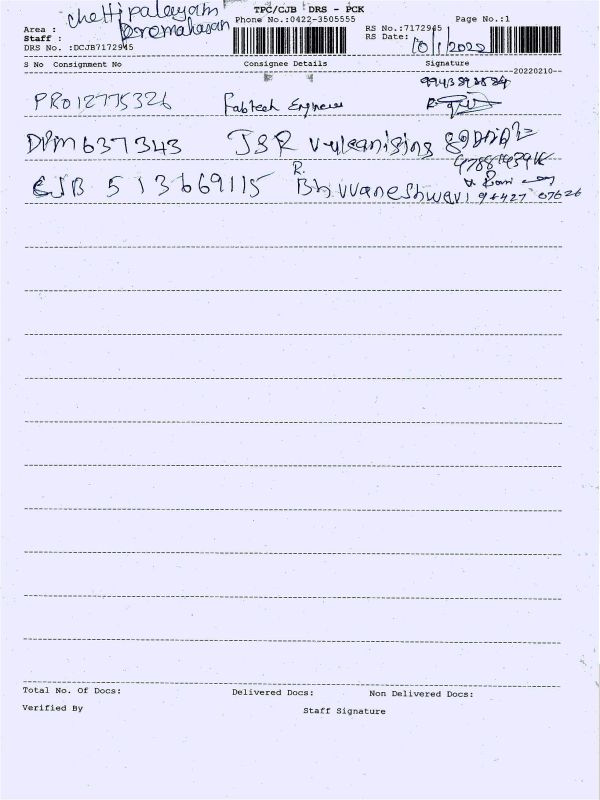 TPC/CJB DRS - PCK
Area : chettipalayam
Phone No.:0422-3505555
Page No.:1
Staff :
RS No.:7172945
DRS No. :DCJB7172945
RS Date: 10/1/2022
S No Consignment No Consignee Details Signature
20220210
PRO12775326 Fabtech Engineers
DPM637343 JSR vulcanising
R.
CJB 513669115 Bhuvaneshwari 94427 07626
Total No. Of Docs: Delivered Docs: Non Delivered Docs:
Verified By Staff Signature